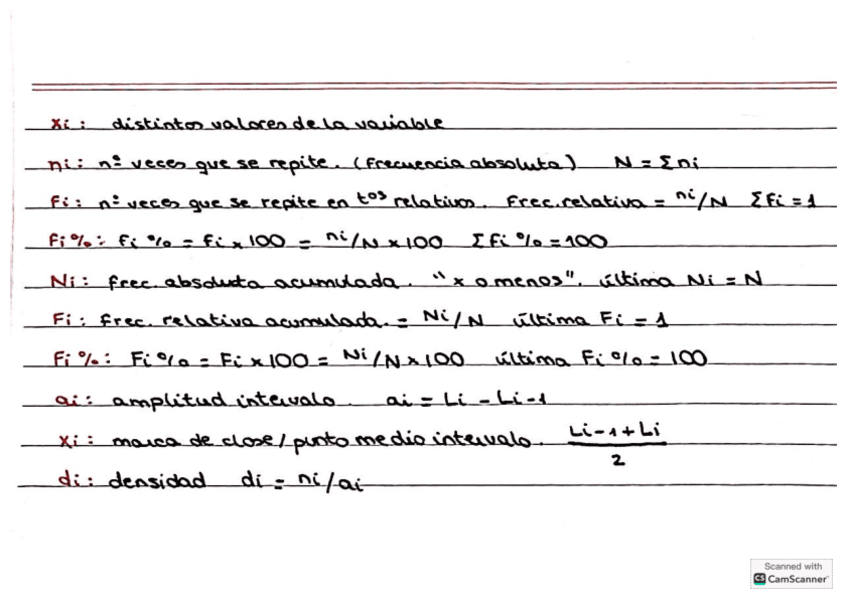 xi: distintos valores de la variable
ni: nº veces que se repite. (frecuencia absoluta) N = Σni
fi: nº veces que se repite en tºs relativos. Frec. relativa = ni/N Σfi = 1
fi%: fi% = fi x 100 = ni/N x 100 Σfi% = 100
Ni: frec. absoluta acumulada. "x o menos". última Ni = N
Fi: frec. relativa acumulada. = Ni/N última Fi = 1
Fi%: Fi% = Fi x 100 = Ni/N x 100 última Fi% = 100
ai: amplitud intervalo. ai = Li - Li-1
xi: marca de clase/punto medio intervalo. Li-1 + Li / 2
di: densidad di = ni/ai
Scanned with
CS CamScanner